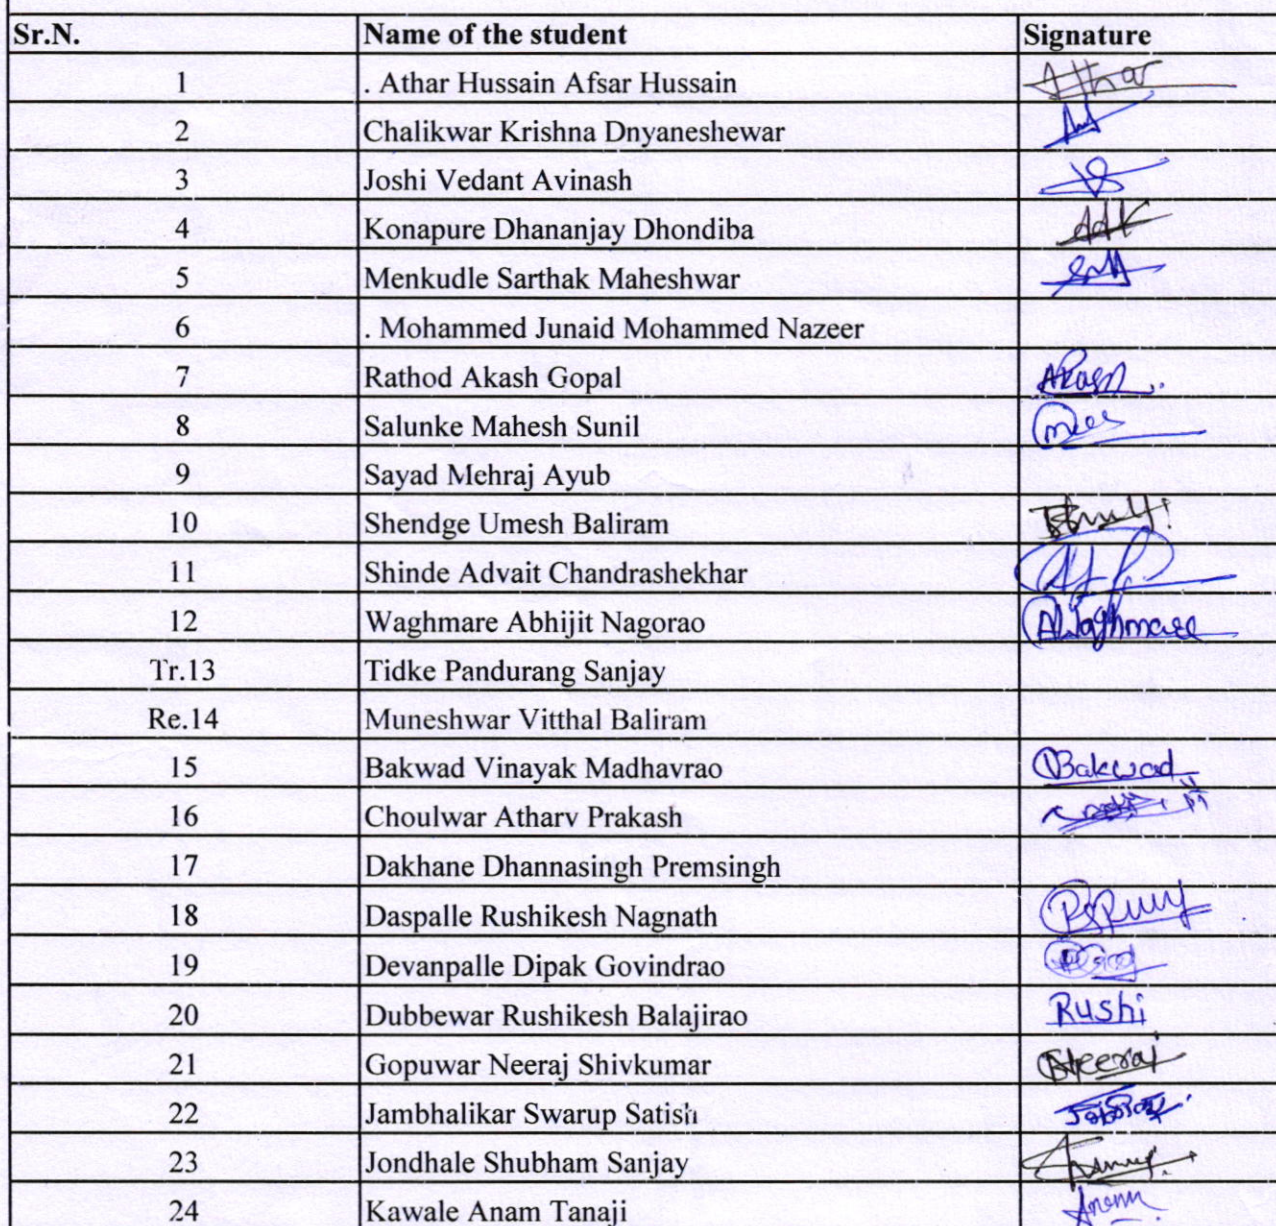 Sr.N. Name of the student Signature
1 . Athar Hussain Afsar Hussain Athar
2 Chalikwar Krishna Dnyaneshewar
3 Joshi Vedant Avinash
4 Konapure Dhananjay Dhondiba
5 Menkudle Sarthak Maheshwar
6 . Mohammed Junaid Mohammed Nazeer
7 Rathod Akash Gopal Akash
8 Salunke Mahesh Sunil
9 Sayad Mehraj Ayub
10 Shendge Umesh Baliram
11 Shinde Advait Chandrashekhar
12 Waghmare Abhijit Nagorao AWaghmare
Tr.13 Tidke Pandurang Sanjay
Re.14 Muneshwar Vitthal Baliram
15 Bakwad Vinayak Madhavrao Bakwad
16 Choulwar Atharv Prakash
17 Dakhane Dhannasingh Premsingh
18 Daspalle Rushikesh Nagnath
19 Devanpalle Dipak Govindrao
20 Dubbewar Rushikesh Balajirao Rushi
21 Gopuwar Neeraj Shivkumar
22 Jambhalikar Swarup Satish
23 Jondhale Shubham Sanjay
24 Kawale Anam Tanaji